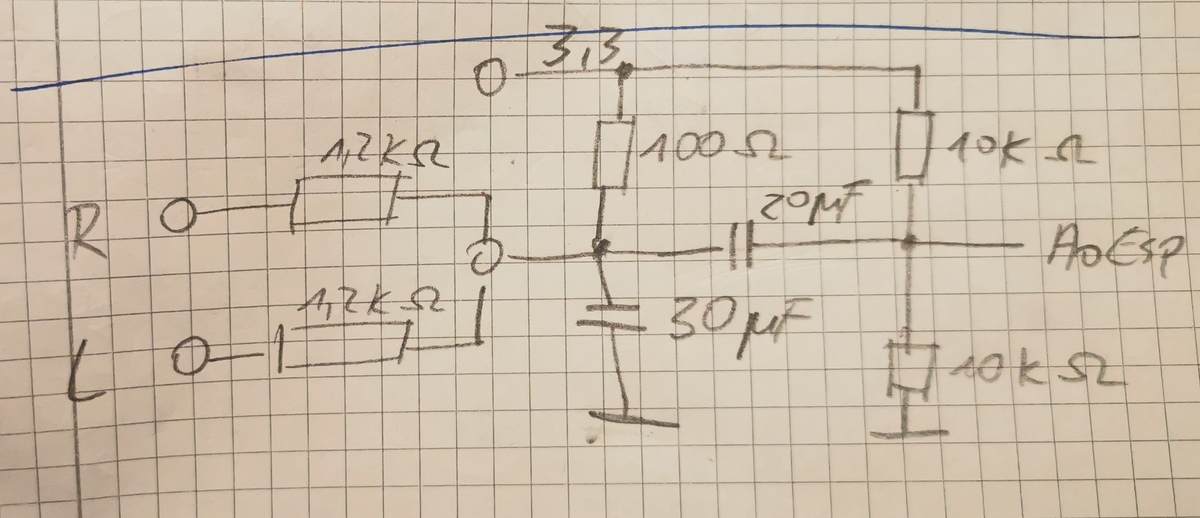 3,3
1,2KΩ
100Ω
10K Ω
R
20µF
A0 Esp
1,2KΩ
30µF
L
10KΩ